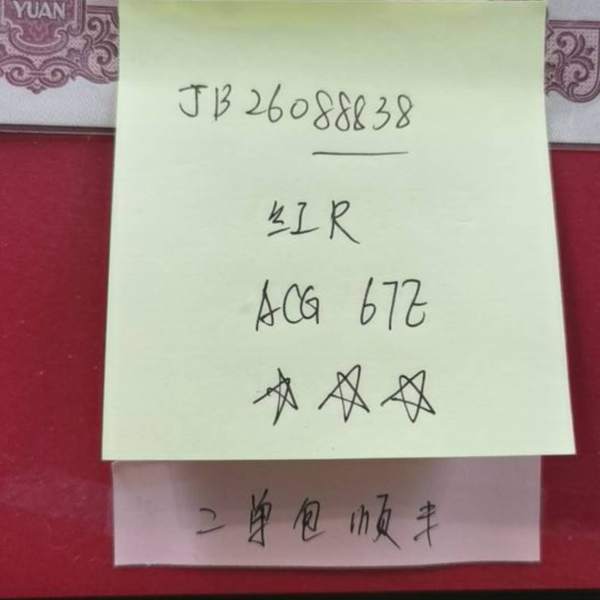 YUAN
JB26088838
红R
ACG 67E
☆☆☆
二单包顺丰